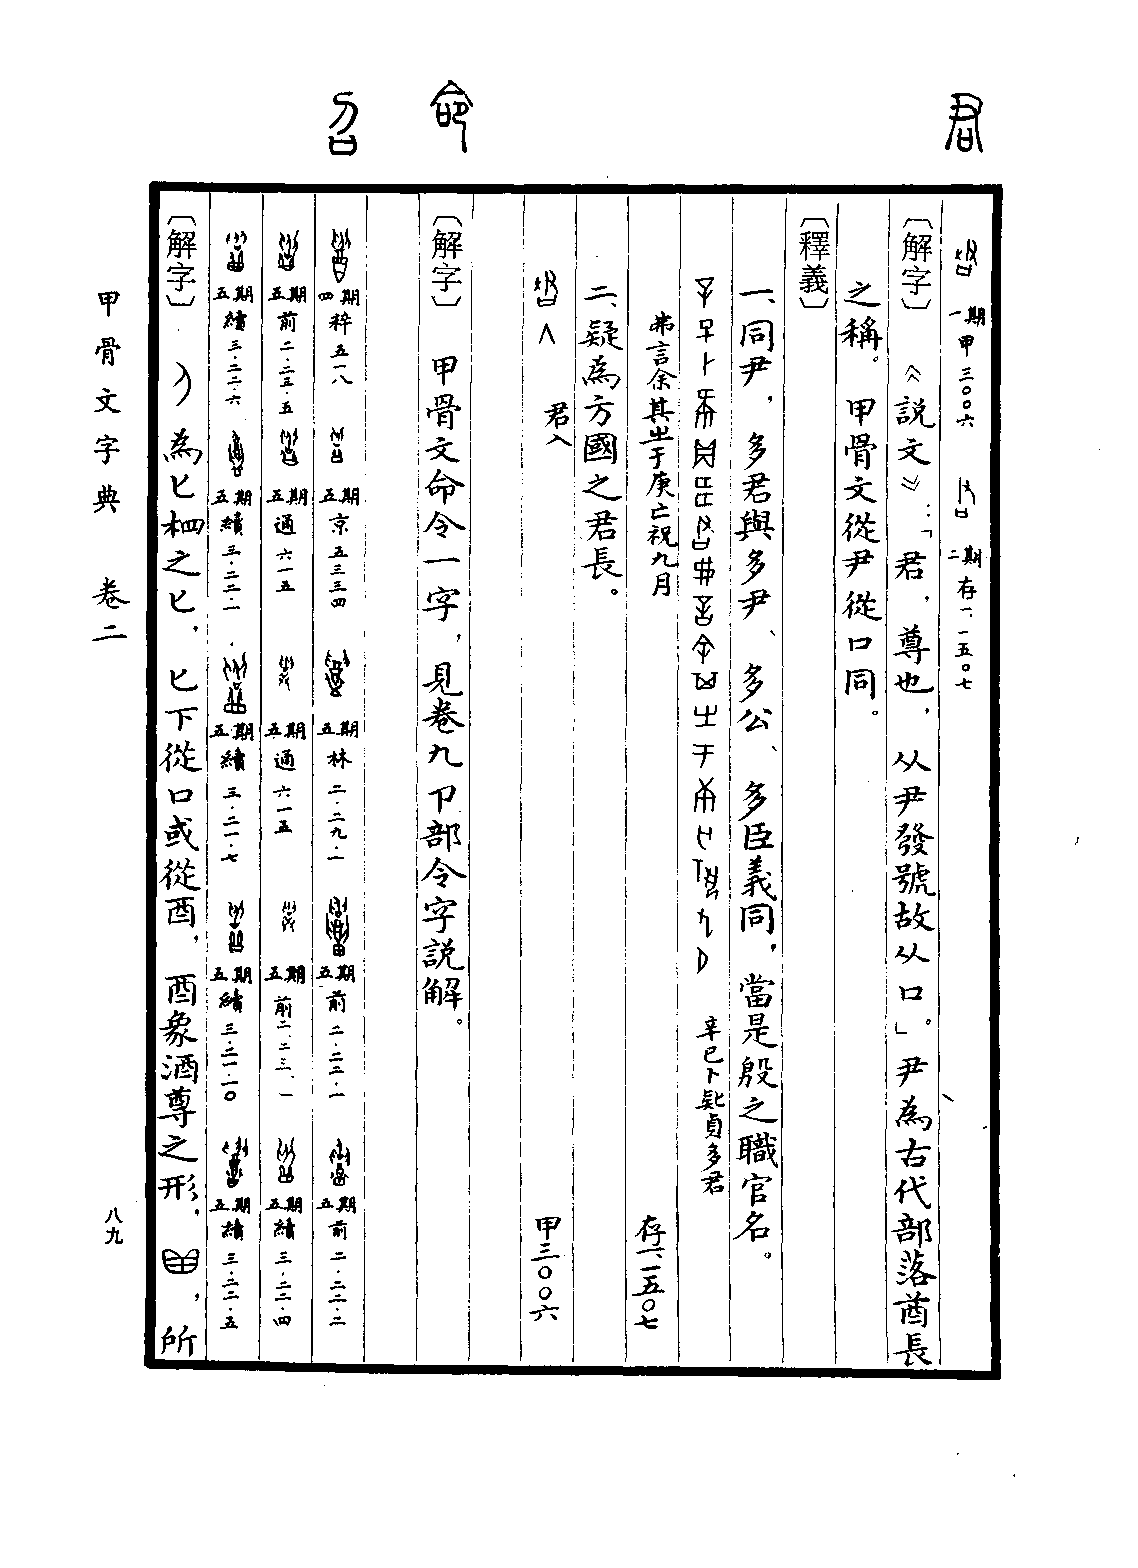 君
一期 甲三〇〇六 二期 存一·一五〇七
〔解字〕《説文》：「君，尊也，从尹發號故从口。」尹為古代部落酋長
之稱。甲骨文從尹從口同。
〔釋義〕
一、同尹，多君與多尹、多公、多臣義同，當是殷之職官名。
辛巳卜貞多君
弗言余其㞢于庚亡祝九月 存一·一五〇七
二、疑為方國之君長。
君入 甲三〇〇六
命
〔解字〕甲骨文命令一字，見卷九卩部令字説解。
召
四期 粹五一八 五期 京五三三四 五期 林二·二九·一 五期 前二·二二·一 五期 前二·二二·二
五期 前二·二三·五 五期 通六一五 五期 通六一五 五期 前二·二三·一 五期 續三·二三·四
五期 續三·二二·六 五期 續三·二二·一 五期 續三·二一·七 五期 續三·二一·一〇 五期 續三·二三·五
〔解字〕為匕柶之匕，匕下從口或從酉，酉象酒尊之形，，所
甲骨文字典 卷二
八九